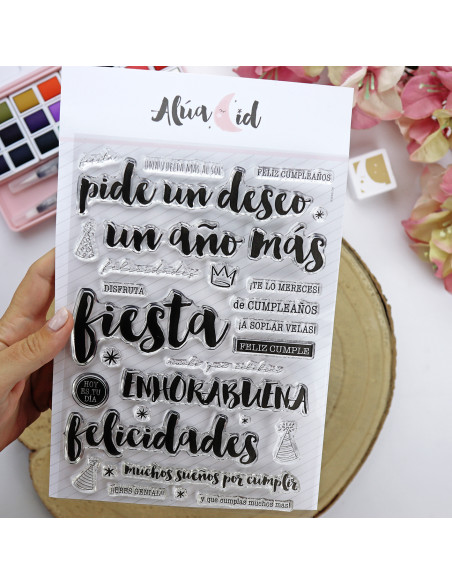 Alúa Cid
FELIZ CUMPLEAÑOS
pide un deseo
un año más
felicidades
¡TE LO MERECES!
DISFRUTA
de CUMPLEAÑOS
fiesta
¡A SOPLAR VELAS!
FELIZ CUMPLE
HOY
ES TU
DÍA
ENHORABUENA
felicidades
muchos sueños por cumplir
¡ERES GENIAL!
y que cumplas muchos mas!